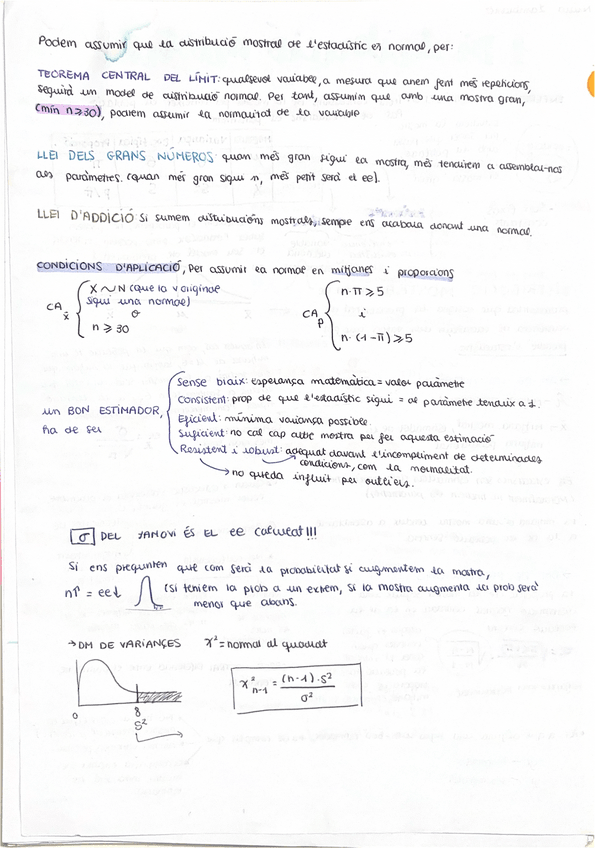 Podem assumir que la distribució mostral de l'estadístic es normal, per:
TEOREMA CENTRAL DEL LÍMIT: qualsevol variable, a mesura que anem fent més repeticions,
seguirà un model de distribució normal. Per tant, assumim que amb una mostra gran,
(mín n≥30), podem assumir la normalitat de la variable
LLEI DELS GRANS NÚMEROS: quan més gran sigui la mostra, més tendirem a assemblar-nos
als paràmetres. (quan més gran sigui n, més petit serà el ee).
LLEI D'ADDICIÓ: Si sumem distribucións mostrals, sempre ens acabarà donant una normal.
CONDICIONS D'APLICACIÓ, per assumir la normal en mitjanes i proporcions
CA x̄ { X ~ N (que la v original
sigui una normal)
o
n ≥ 30
CA p { n·π ≥ 5
i
n·(1-π) ≥ 5
un BON ESTIMADOR,
ha de ser
Sense biaix: esperança matemàtica = valor paràmetre
Consistent: prop de que l'estadístic sigui = al paràmetre tendeix a 1.
Eficient: mínima variança possible
Suficient: no cal cap altre mostra per fer aquesta estimació
Resistent i robust: adequat davant l'incompliment de determinades
condicions, com la normalitat.
no queda influit per outliers.
σ DEL JANOVI ÉS EL ee calculat!!!
Si ens pregunten que com serà la probabilitat si augmentem la mostra,
n↑ = ee↓ (si teniem la prob a un extrem, si la mostra augmenta la prob serà
menor que abans.
→ DM DE VARIANÇES χ² = normal al quadrat
χ² n-1 = (n-1)·S² / σ²
0 8
S²